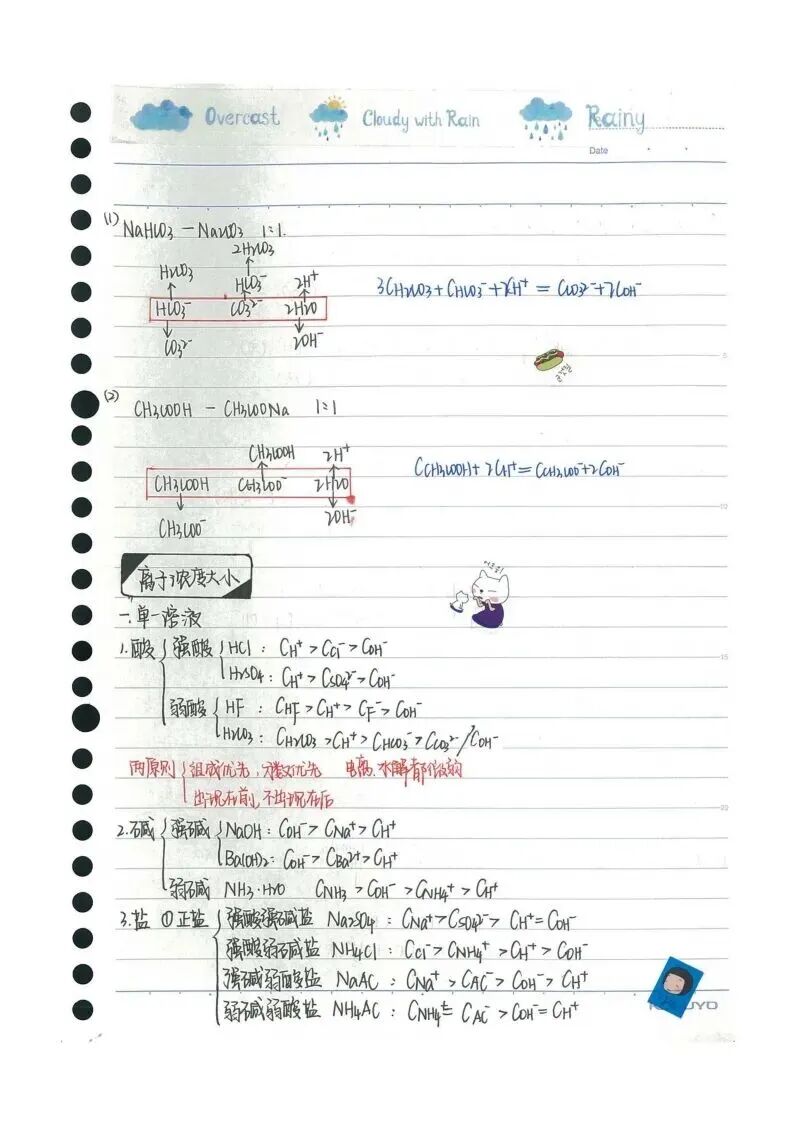 Overcast Cloudy with Rain Rainy
Date
(1) NaHCO3 — Na2CO3 1:1.
2H2CO3
H2CO3 HCO3⁻ 2H⁺
3CH2CO3 + CHCO3⁻ + 2CH⁺ = CCO3²⁻ + 2COH⁻
HCO3⁻ CO3²⁻ 2H2O
CO3²⁻ 2OH⁻
5
(2) CH3COOH — CH3COONa 1:1
CH3COOH 2H⁺
CCH3COOH + 2CH⁺ = CCH3COO⁻ + 2COH⁻
CH3COOH CH3COO⁻ 2H2O
10
CH3COO⁻ 2OH⁻
离子浓度大小
一.单一溶液
1.酸 强酸 HCl : CH⁺ > CCl⁻ > COH⁻
15
H2SO4 : CH⁺ > CSO4²⁻ > COH⁻
弱酸 HF : CHF > CH⁺ > CF⁻ > COH⁻
H2CO3 : CH2CO3 > CH⁺ > CHCO3⁻ > CCO3²⁻/COH⁻
两原则 组成优先, 系数优先 电离.水解都微弱
出现在前,不出现在后
20
2.碱 强碱 NaOH : COH⁻ > CNa⁺ > CH⁺
Ba(OH)2 : COH⁻ > CBa²⁺ > CH⁺
弱碱 NH3·H2O CNH3 > COH⁻ > CNH4⁺ > CH⁺
3.盐 ①正盐 强酸强碱盐 Na2SO4 : CNa⁺ > CSO4²⁻ > CH⁺ = COH⁻
强酸弱碱盐 NH4Cl : CCl⁻ > CNH4⁺ > CH⁺ > COH⁻
强碱弱酸盐 NaAC : CNa⁺ > CAC⁻ > COH⁻ > CH⁺
弱碱弱酸盐 NH4AC : CNH4⁺ = CAC⁻ > COH⁻ = CH⁺